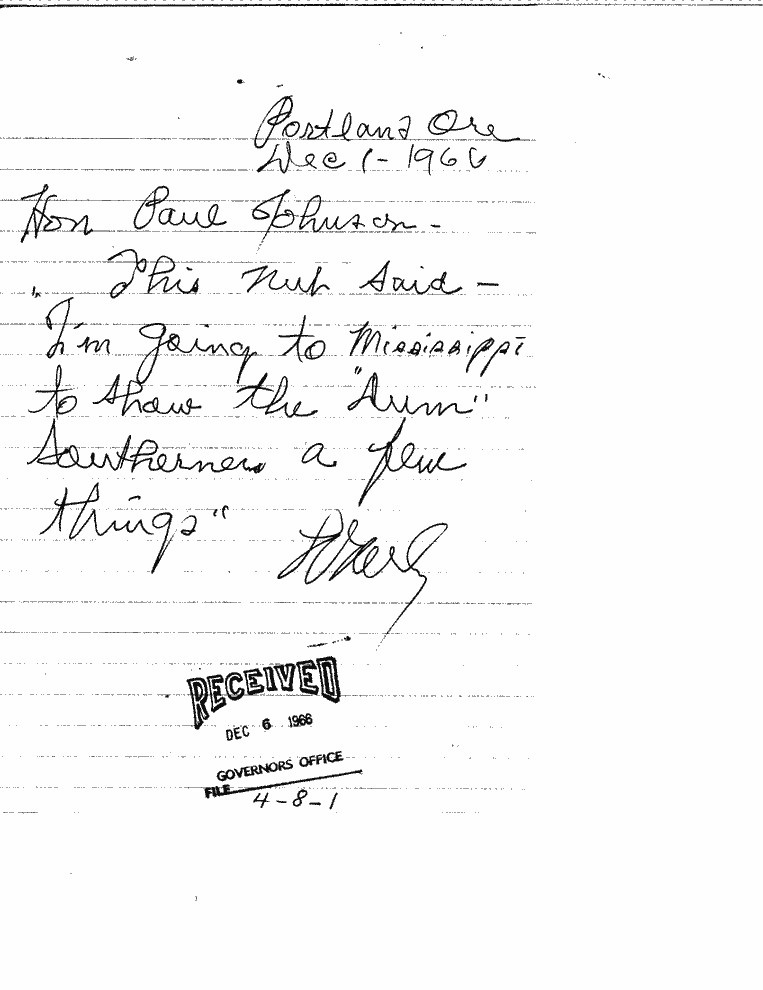 Portland Ore
Dec 1 - 1966
Hon Paul Johnson -
" This Nut Said -
I'm going to Mississippi
to show the "dum"
Southerners a few
things"
RECEIVED
DEC 6 1966
GOVERNORS OFFICE
FILE
4-8-1